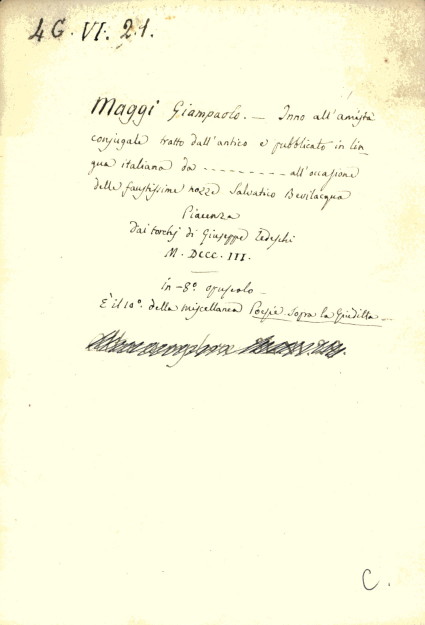 4G. VI. 21.
Maggi Giampaolo. — Inno all'amistà
conjugale tratto dall'antico e pubblicato in lin
gua italiana da - - - - - - - - - all'occasione
delle faustissime nozze Salvatico Bevilacqua
Piacenza
Dai torchj di Giuseppe Tedeschi
M. DCCC. III.
in-8º. opuscolo —
È il 10º. della miscellanea Poesie Sopra la Giuditta —
C.